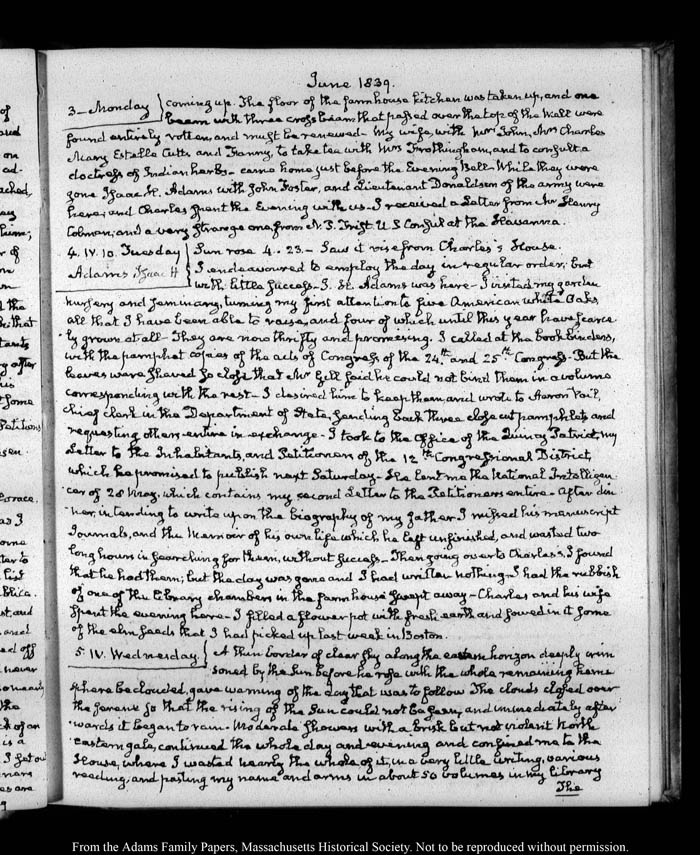 June 1839.
3 – Monday } coming up. The floor of the farmhouse kitchen was taken up, and one
beam with three cross beams that passed over the top of the Wall were
found entirely rotten and must be renewed – My wife, with Mrs John, Mrs Charles
Mary, Estelle Cutts and Fanny, to take tea with Mrs Frothingham, and to consult a
doctress of Indian herbs – came home just before the Evening Bell – While they were
gone Isaac H. Adams with John Foster, and Lieutenant Donaldson of the army were
here, and Charles spent the Evening with us – I received a Letter from Mr Henry
Colman, and a very strange one from N. P. Trist U.S. Consul at the Havanna.
4. IV. 10. Tuesday } Sun rose 4 . 23 – Saw it rise from Charles's House.
Adams Isaac H } I endeavoured to employ the day in regular order; but
with little success – I. H. Adams was here – I visited my garden
nursery and seminary, turning my first attention to five American white Oaks,
all that I have been able to raise, and four of which until this year have scarce-
ly grown at all – They are now thrifty and promising. I called at the book binders,
with the pamphlet copies of the acts of Congress of the 24th and 25th Congress – But the
leaves were shaved so close that Mr Gill said he could not bind them in a volume
corresponding with the rest – I desired him to keep them, and wrote to Aaron Vail,
chief clerk in the Department of State, sending back three close cut pamphlets and
requesting others entire in exchange – I took to the Office of the Quincy Patriot, my
Letter to the Inhabitants, and Petitioners of the 12th Congressional District,
which he promised to publish next Saturday – He lent me the National Intelligen-
cer of 28 May, which contains my second Letter to the Petitioners entire – After din-
ner, intending to write upon the biography of my father I missed his manuscript
Journals, and the Memoir of his own life which he left unfinished, and wasted two
long hours in searching for them, without success – Then going over to Charles's, I found
that he had them; but the day was gone and I had written nothing – I had the rubbish
of one of the Library chambers in the farm house swept away – Charles and his wife
spent the evening here – I filled a flower pot with fresh earth and sowed in it some
of the elm seeds that I had picked up last week in Boston.
5. IV. Wednesday } A thin border of clear sky along the eastern horizon deeply crim-
soned by the Sun before he rose with the whole remaining hemi-
sphere beclouded, gave warning of the day that was to follow. The clouds closed over
the serene so that the rising of the Sun could not be seen, and immediately after-
wards it began to rain – Moderate showers with a brisk but not violent North
easterly gale, continued the whole day and evening and confined me to the
House, where I wasted nearly the whole of it, in a very little writing, various
reading, and pasting my name and arms in about 50 volumes in my library
The
From the Adams Family Papers, Massachusetts Historical Society. Not to be reproduced without permission.